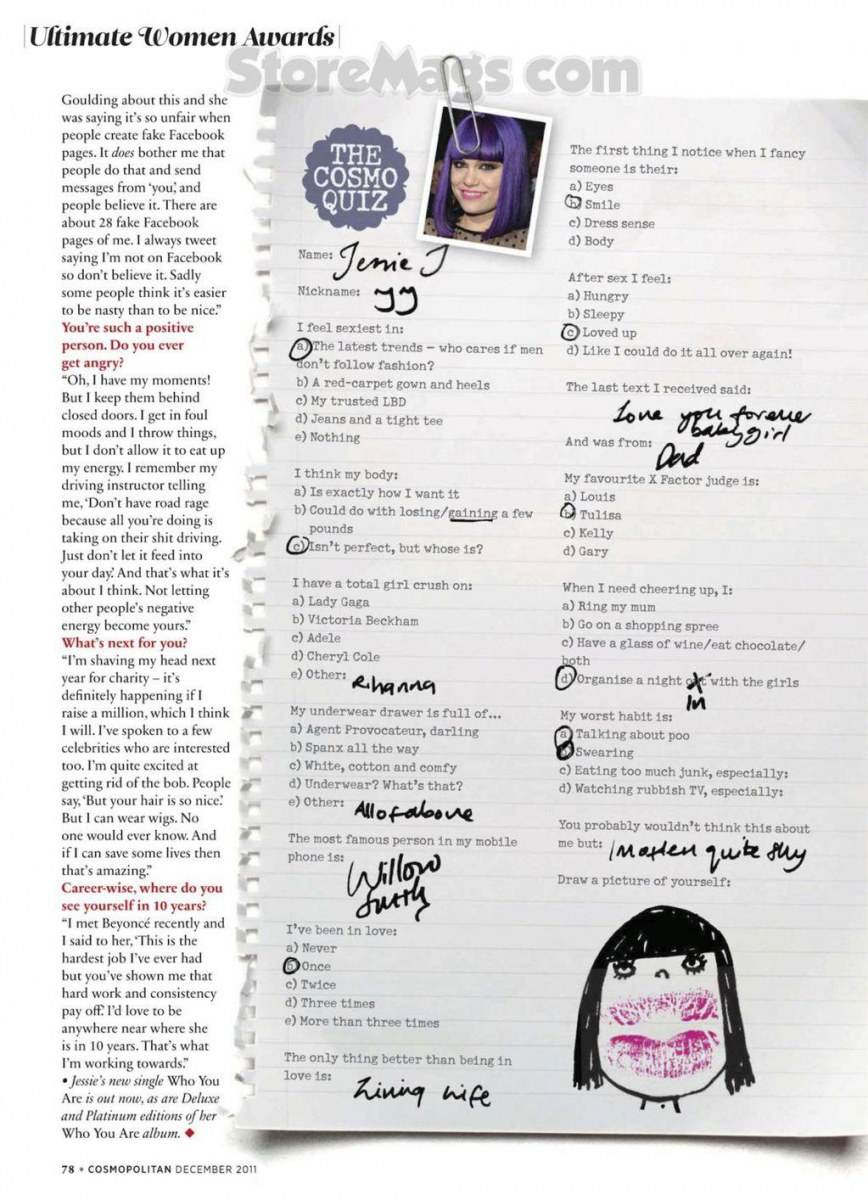 Ultimate Women Awards
StoreMags com
Goulding about this and she
was saying it's so unfair when
people create fake Facebook
pages. It does bother me that
people do that and send
messages from 'you', and
people believe it. There are
about 28 fake Facebook
pages of me. I always tweet
saying I'm not on Facebook
so don't believe it. Sadly
some people think it's easier
to be nasty than to be nice."
You're such a positive
person. Do you ever
get angry?
"Oh, I have my moments!
But I keep them behind
closed doors. I get in foul
moods and I throw things,
but I don't allow it to eat up
my energy. I remember my
driving instructor telling
me, 'Don't have road rage
because all you're doing is
taking on their shit driving.
Just don't let it feed into
your day.' And that's what it's
about I think. Not letting
other people's negative
energy become yours."
What's next for you?
"I'm shaving my head next
year for charity – it's
definitely happening if I
raise a million, which I think
I will. I've spoken to a few
celebrities who are interested
too. I'm quite excited at
getting rid of the bob. People
say, 'But your hair is so nice.'
But I can wear wigs. No
one would ever know. And
if I can save some lives then
that's amazing."
Career-wise, where do you
see yourself in 10 years?
"I met Beyoncé recently and
I said to her, 'This is the
hardest job I've ever had
but you've shown me that
hard work and consistency
pay off.' I'd love to be
anywhere near where she
is in 10 years. That's what
I'm working towards."
• Jessie's new single Who You
Are is out now, as are Deluxe
and Platinum editions of her
Who You Are album. ◆
THE
COSMO
QUIZ
Name: Jessie J
Nickname: JJ
I feel sexiest in:
a) The latest trends – who cares if men
don't follow fashion?
b) A red-carpet gown and heels
c) My trusted LBD
d) Jeans and a tight tee
e) Nothing
I think my body:
a) Is exactly how I want it
b) Could do with losing/gaining a few
pounds
c) Isn't perfect, but whose is?
I have a total girl crush on:
a) Lady Gaga
b) Victoria Beckham
c) Adele
d) Cheryl Cole
e) Other: Rihanna
My underwear drawer is full of...
a) Agent Provocateur, darling
b) Spanx all the way
c) White, cotton and comfy
d) Underwear? What's that?
e) Other: All of above
The most famous person in my mobile
phone is: Willow
Smith
I've been in love:
a) Never
b) Once
c) Twice
d) Three times
e) More than three times
The only thing better than being in
love is: Living life
The first thing I notice when I fancy
someone is their:
a) Eyes
b) Smile
c) Dress sense
d) Body
After sex I feel:
a) Hungry
b) Sleepy
c) Loved up
d) Like I could do it all over again!
The last text I received said:
Love you forever
babygirl
And was from: Dad
My favourite X Factor judge is:
a) Louis
b) Tulisa
c) Kelly
d) Gary
When I need cheering up, I:
a) Ring my mum
b) Go on a shopping spree
c) Have a glass of wine/eat chocolate/
both
d) Organise a night out with the girls
In
My worst habit is:
a) Talking about poo
b) Swearing
c) Eating too much junk, especially:
d) Watching rubbish TV, especially:
You probably wouldn't think this about
me but: quite shy
Draw a picture of yourself:
78 • COSMOPOLITAN DECEMBER 2011